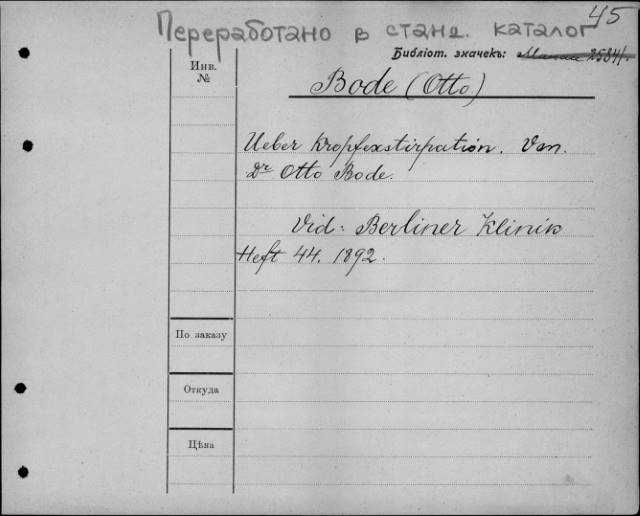 45
Переработано в станд. каталог
Библіот. значекъ:
Инв.
№
Bode (Otto)
Ueber Kropfexstirpation. Von
Dr Otto Bode.
Vid: Berliner Klinik
Heft 44. 1892.
По заказу
Откуда
Цѣна